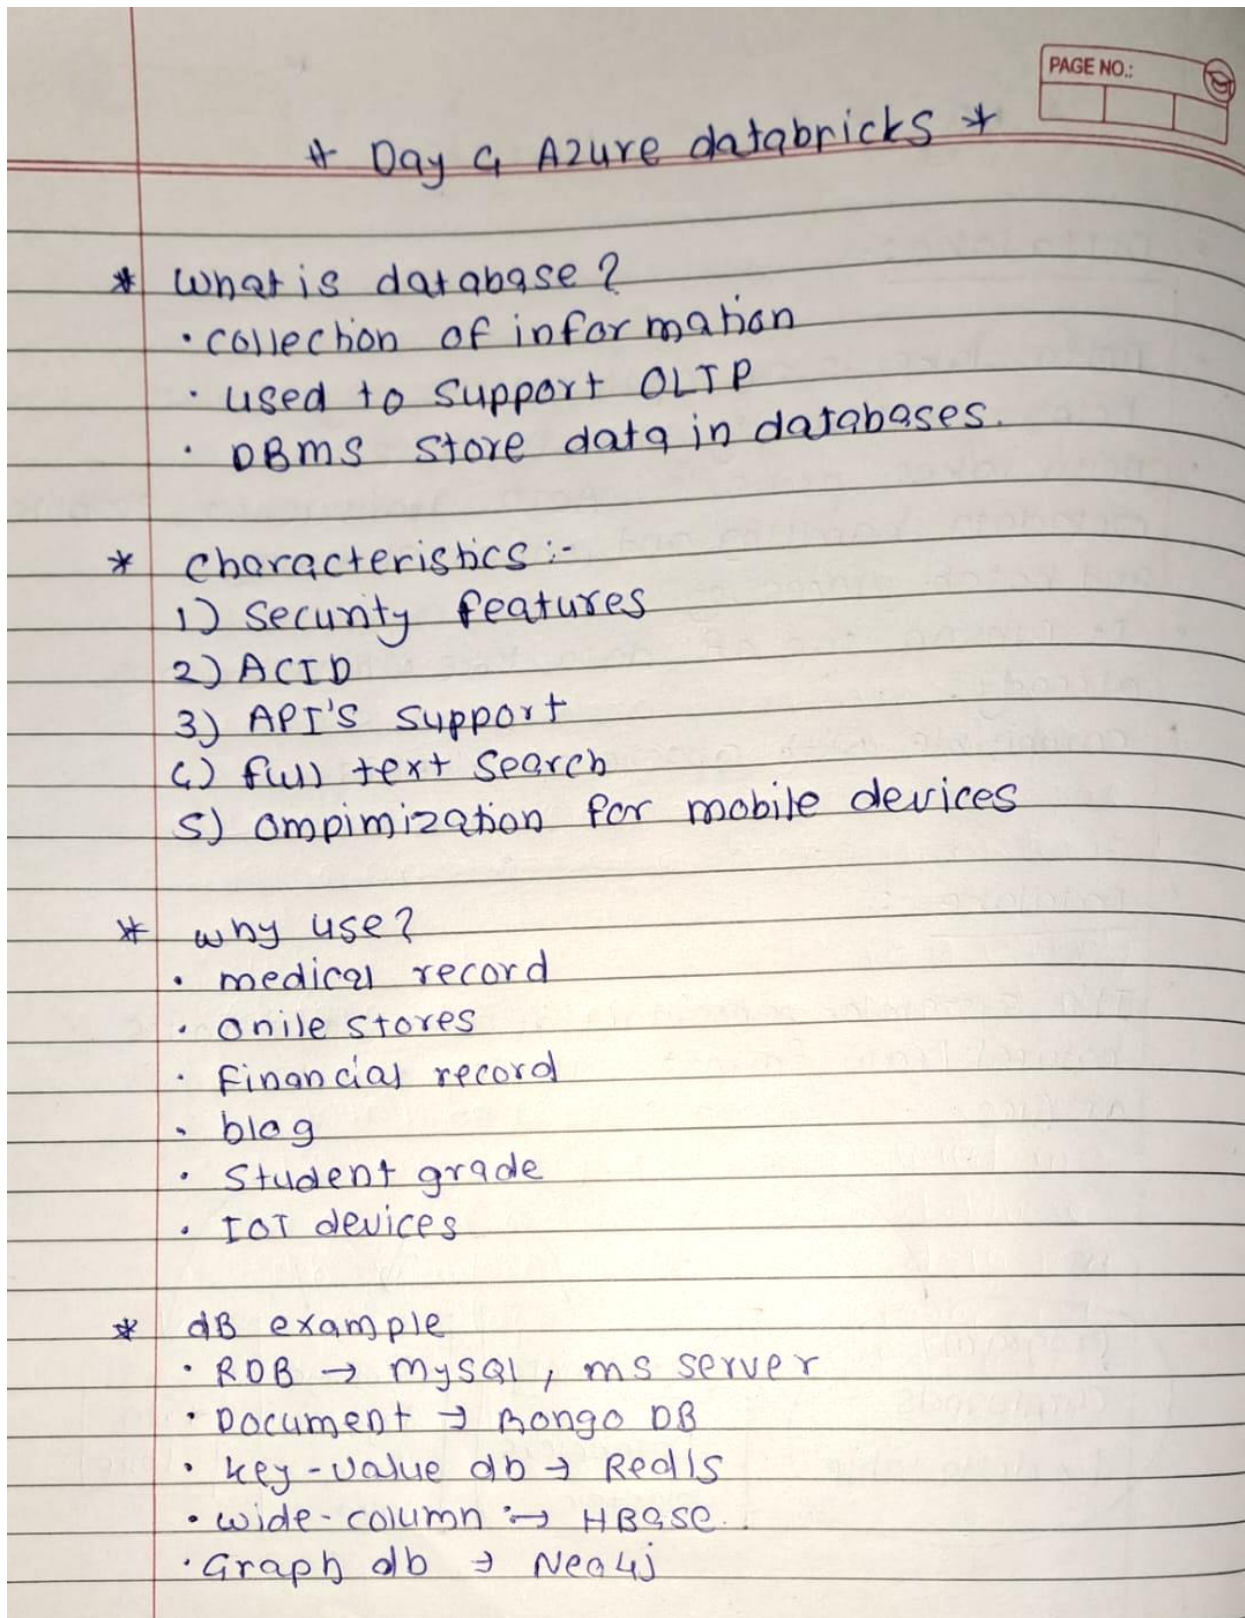 PAGE NO.:
* Day 4 Azure databricks *
* What is database ?
· collection of information
· used to support OLTP
· DBMS store data in databases.
* characteristics :-
1) security features
2) ACID
3) API'S support
4) full text search
5) ompimization for mobile devices
* why use ?
· medical record
· onile stores
· Financial record
· blog
· Student grade
· IOT devices
* dB example
· RDB → MySQL, ms server
· Document → Mongo DB
· key-value db → Redis
· wide-column :→ HBase.
· Graph db → Neo4j